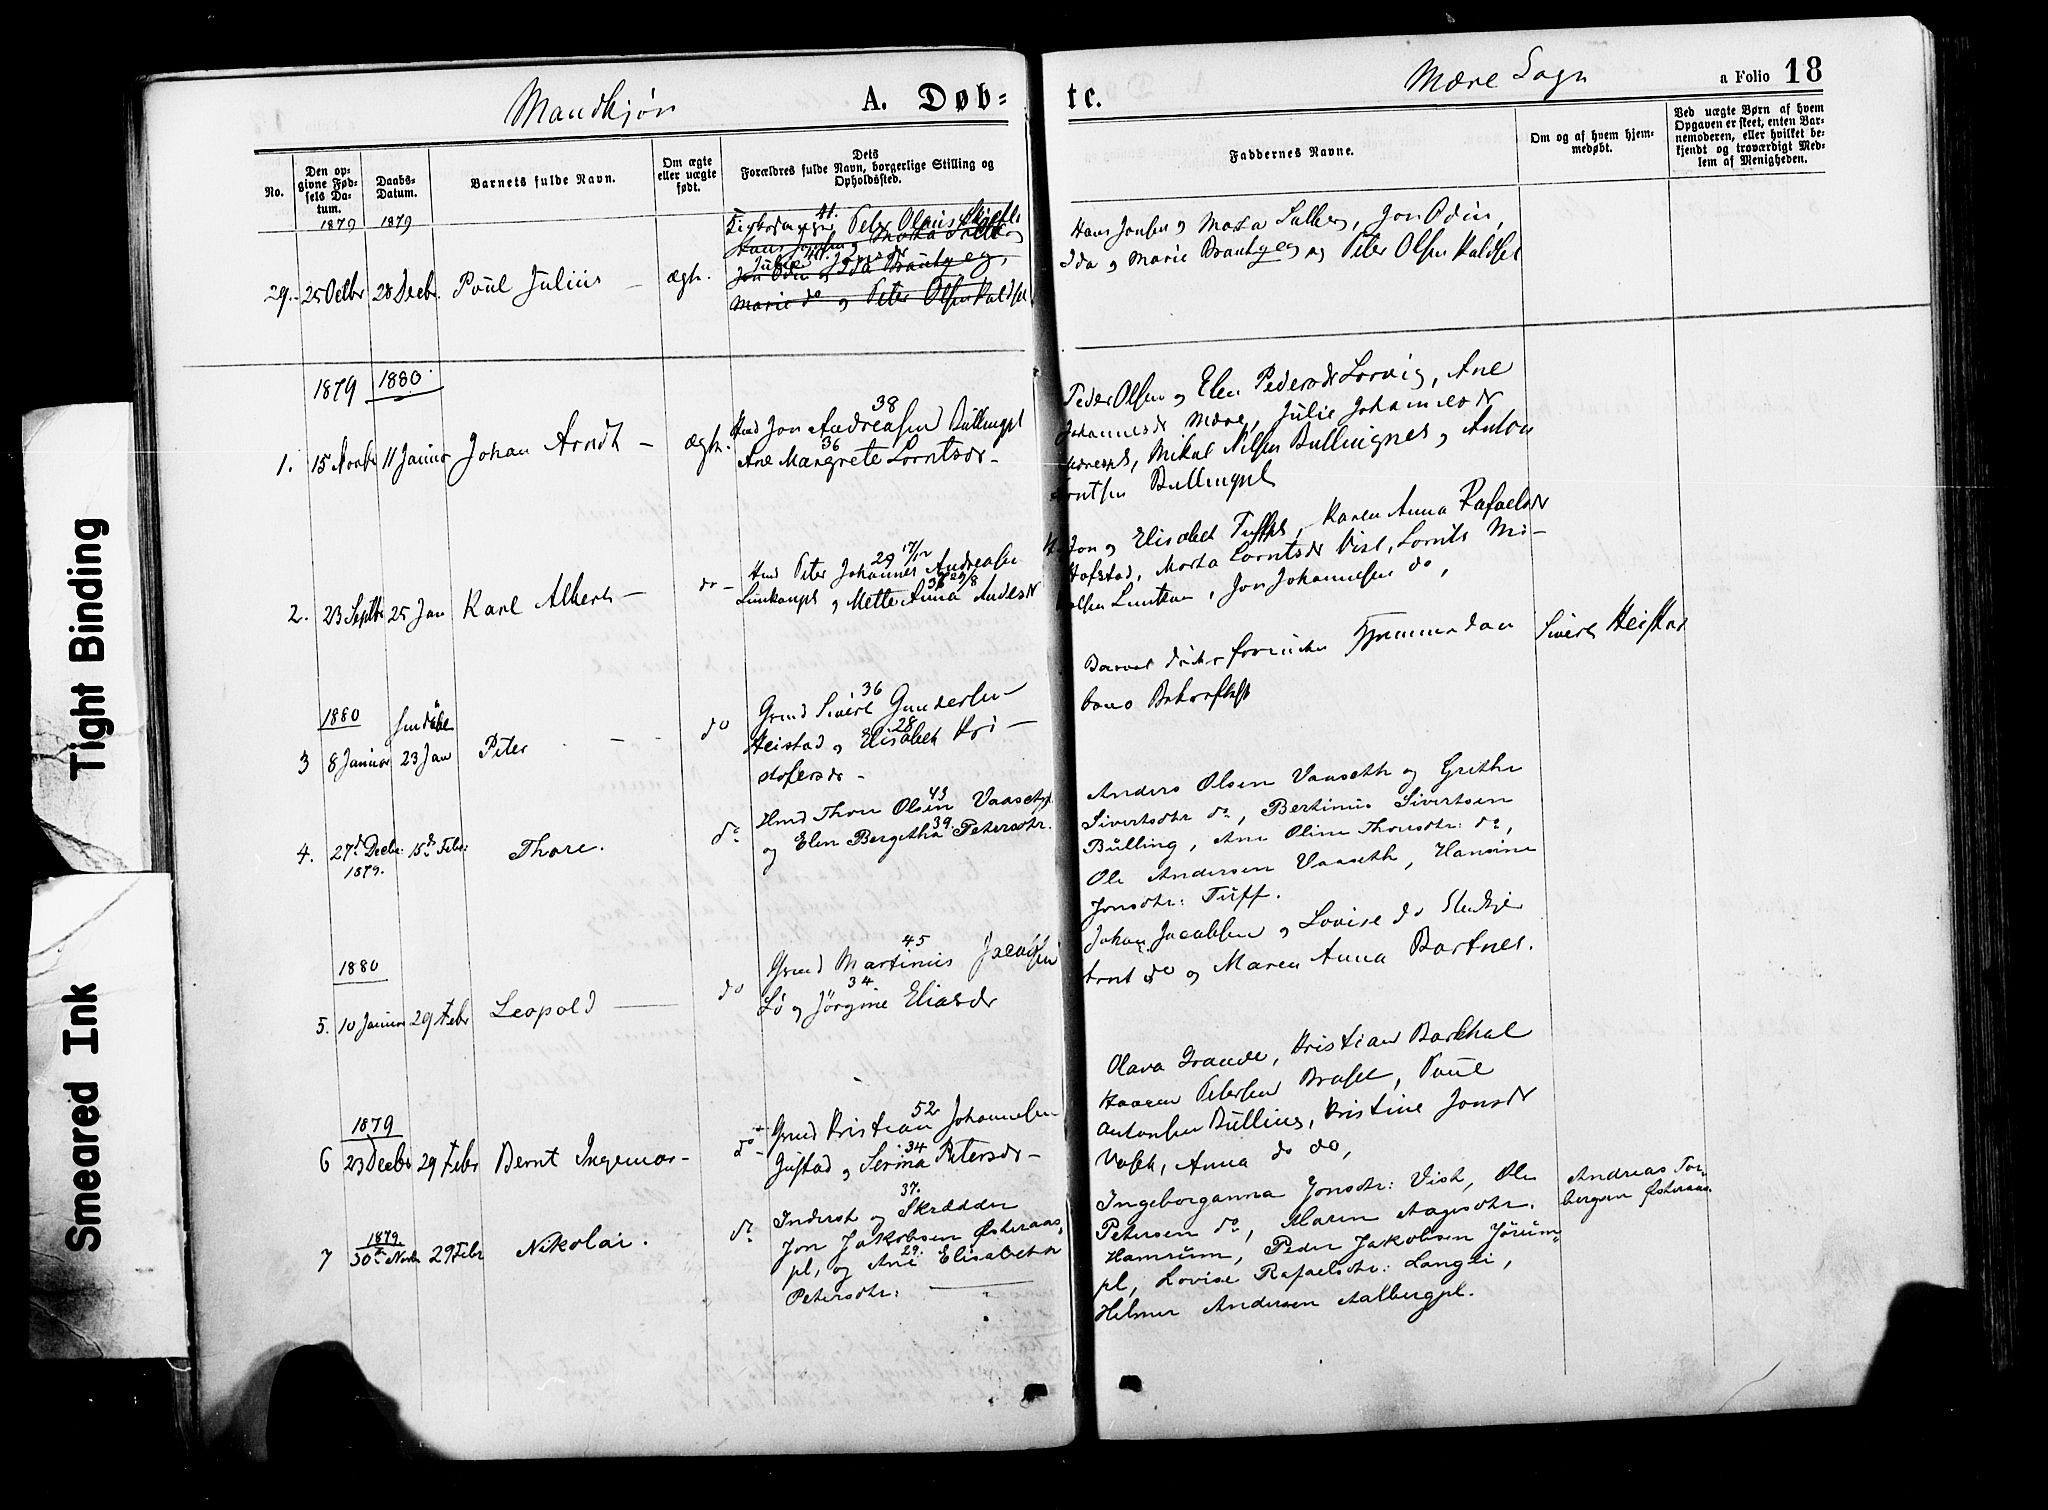 Mandkjøn
A. Døb=
te.
Mære Sogn
a Folio 18
No.
Den op-
givne Fød-
sels Da-
tum.
Daabs-
Datum.
Barnets fulde Navn.
Om ægte
eller uægte
født.
Dets
Forældres fulde Navn, borgerlige Stilling og
Opholdssted.
Faddernes Navne.
Om og af hvem hjem-
medøbt.
Ved uægte Børn af hvem
Opgaven er skeet, enten Bar-
nemoderen, eller hvilket be-
kjendt og troværdigt Med-
lem af Menigheden.
1879
1879
29. 25 Octbr 28 Decbr. Poul Julius — ægte.
41.
Peter Olaus
Hans Jonsen og Marta
Jon Odin og Ida
Marie do og Peter Olsen
Hans Jonsen og Marta Salberg, Jon Odin,
Ida og Marie og Peter Olsen
1879 1880
1. 15 Novbr 11 Januar Johan Arndt — ægte.
38
Hmd Jon Andreasen Bullingpl
36
Ane Margrete Lorntsdr —
Peder Olsen og Elen Pedersdr Lorvig, Ane
Johannesdr Mære, Julie Johannesdr
Mærespl, Mikal Nilsen Bullingnes og Anton
Lorntsen Bullingpl
2. 23 Septbr 25 Jan Karl Albert — do —
29 17/12
Hmd Peter Johannes Andreasen
36 29/8
Lunkanpl og Mette Anna Andersdr
Jon og Elisabet Tuffpl, Karen Anna Rafaelsdr
Hofstad, Marta Lorntsdr Vist, Lornts Mi-
kalsen Lunkan, Jon Johannesen do,
1880
3 8 Januar 23 Jan Peter — — do
36
Grmd Sivert Gundersen —
28
Heistad og Elisabet Kri —
stofersdr —
Barnet døde forinden Fremmedan
Sivert Heistad
4. 27de Decbr. 15de Febr: Thore. do
1879.
43
Hmd Thore Olsen Vaasetpl.
39.
og Elen Bergitha Petersdtr.
Anders Olsen Vaaseth og Grethe
Sivertsdtr do, Bertinus Sivertsen
Bulling, Ane Oline Thoresdtr: do,
Ole Andersen Vaaseth, Hansine
Jonsdtr: Tuff.
1880
5. 10 Januar 29 Febr Leopold — do
45
Grmd Martinus Jacobsen
34
Lø og Jørgine Eliasdr
Johan Jacobsen og Lovise do
Arnt do og Maren Anna Bartnes.
1879
6 23 Decbr 29 Febr Bernt Ingemar — do —
52
Grmd Kristian Johannesen
34
Gustad og Serina Petersdr —
Olava Grande, Kristian Barthal
Haaren Petersen Braset, Paul
Antonsen Bulling, Kristine Jonsdr
Vaset, Anna do do,
1879
7 30te Novbr 29 Febr Nikolai. do
37.
Inderst og Skrædder
Jon Jakobsen Østeraas-
29.
pl, og Ane Elisabeth
Petersdtr: —
Ingeborganna Jonsdtr: Vist, Ole
Petersen do, Maren Aagesdtr.
Hamrum, Peder Jakobsen Jørum-
pl, Lovise Rafaelsdtr: Langli,
Helmer Andersen Aalbergpl.
Andreas Tor-
bergsen Østeraas.
Tight Binding
Smeared Ink